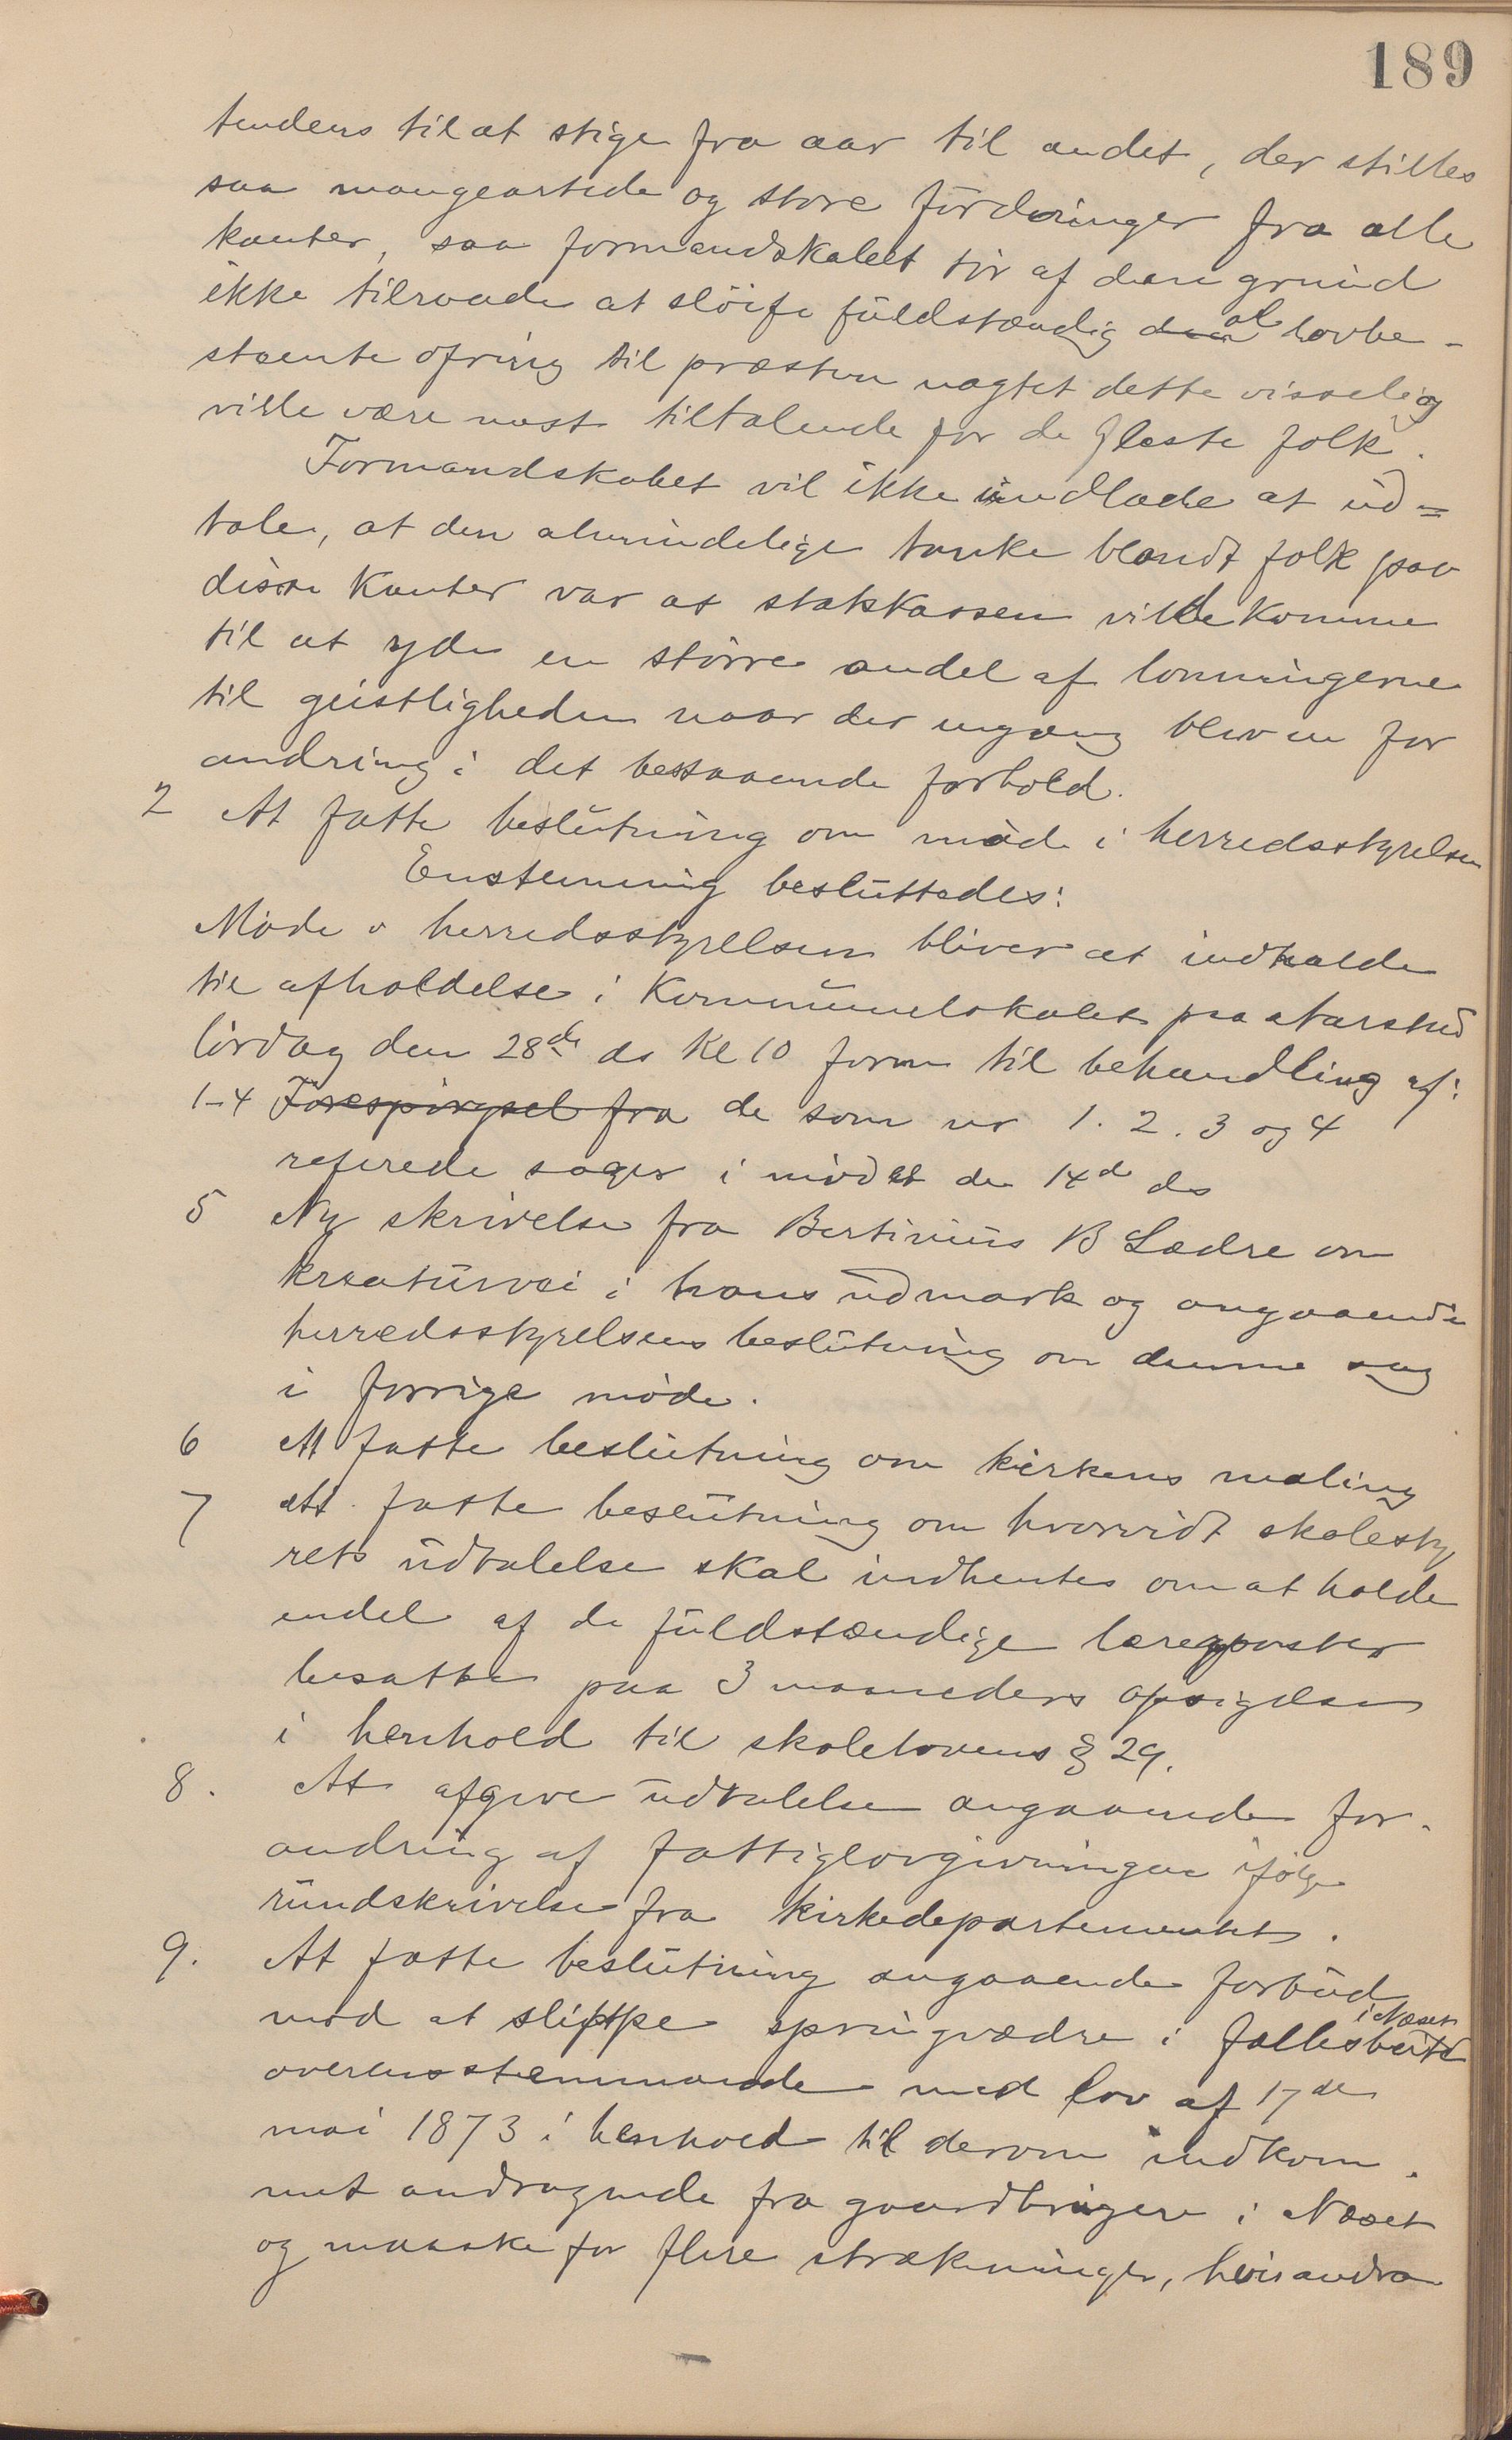 189
tendens til at stige fra aar til andet, der stilles
saa mangeartede og store fordringer fra alle
kanter, saa formandskabet tør af den grund
ikke tilraade at sløife fuldstændig den al lovbe-
stemte ofring til præsten uagtet dette visselig
ville være mest tiltalende for de fleste folk.
Formandskabet vil ikke undlade at ud=
tale, at den almindelige tanke blandt folk paa
disse kanter var at statskassen vilde komme
til at yde en større andel af lønningerne
til geistligheden naar der engang blev en for
andring i det bestaaende forhold.
2 At fatte beslutning om møde i herredsstyrelsen
Enstemmig besluttedes:
Møde i herredsstyrelsen bliver at indkalde
til afholdelse i Kommunelokalet paa Aarstad
lørdag den 28de ds Kl 10 form til behandling af:
1-4 Forespørgsel fra de som nr 1. 2. 3 og 4
referede sager i mødet den 14de ds
5 Ny skrivelse fra Bertinius B Lædre om
kreaturvei i hans udmark og angaaende
herredsstyrelsens beslutning om denne sag
i forrige møde.
6 At fatte beslutning om kirkens maling
7 At fatte beslutning om hvorvidt skolesty
rets udtalelse skal indhentes om at holde
endel af de fuldstændige læreposter
besatte paa 3 maaneders opsigelse
i henhold til skolelovens § 29.
8. At afgive udtalelse angaaende for-
andring af fattiglovgivningen ifølge
rundskrivelse fra kirkedepartementet.
9. At fatte beslutning angaaende forbud
mod at slippe springvædre i fællesbeite i Næset
overensstemmende med lov af 17de
mai 1873 i henhold til derom indkom-
met andragende fra gaardbrugere i Næset
og maaske for flere strækninger, hvis andra